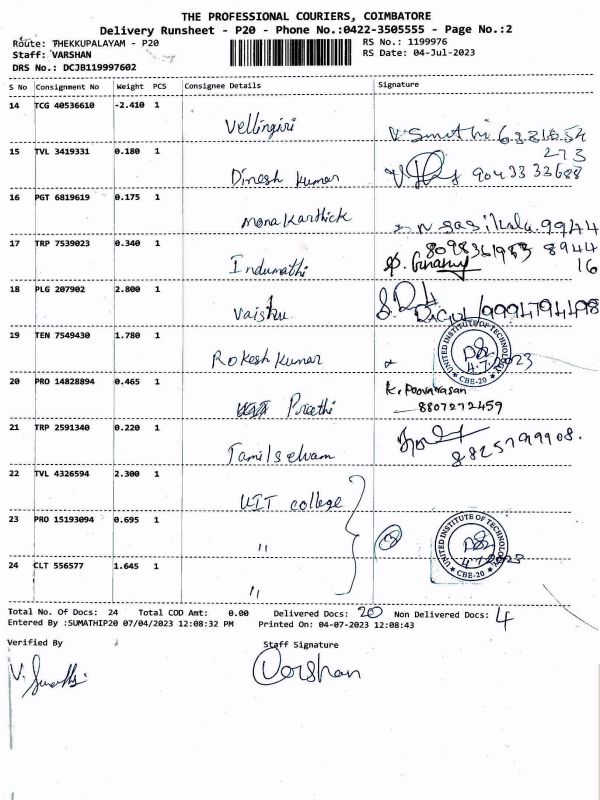 THE PROFESSIONAL COURIERS, COIMBATORE
Delivery Runsheet - P20 - Phone No.:0422-3505555 - Page No.:2
Route: THEKKUPALAYAM - P20 RS No.: 1199976
Staff: VARSHAN RS Date: 04-Jul-2023
DRS No.: DCJB119997602
S No Consignment No Weight PCS Consignee Details Signature
14 TCG 40536610 -2.410 1
Vellingiri
15 TVL 3419331 0.180 1
Dinesh Kumar 9043333688
16 PGT 6819619 0.175 1
Mona Karthick
17 TRP 7539023 0.340 1
Indumathi
18 PLG 207902 2.800 1
Vaishu
19 TEN 7549430 1.780 1
UNITED INSTITUTE OF TECHNOLOGY
CBE-20
Rokesh Kumar
20 PRO 14828894 0.465 1
K. Poovarasan
Preethi 8807272459
21 TRP 2591340 0.220 1
Tamilselvam 8825799908.
22 TVL 4326594 2.300 1
UIT college
23 PRO 15193094 0.695 1
"
UNITED INSTITUTE OF TECHNOLOGY
CBE-20
24 CLT 556577 1.645 1
"
Total No. Of Docs: 24 Total COD Amt: 0.00 Delivered Docs: 20 Non Delivered Docs: 4
Entered By :SUMATHIP20 07/04/2023 12:08:32 PM Printed On: 04-07-2023 12:08:43
Verified By Staff Signature
V. Sumathi Varshan